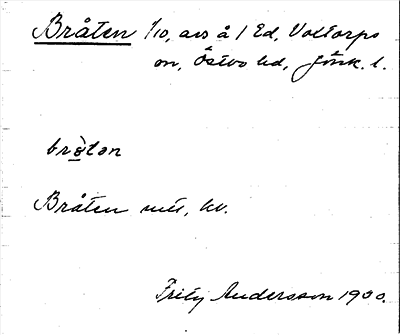 Bråten 1/10, avs å 1 Ed, Voxtorps
sn, Östbo hd, Jönk. l.
bråtən
Bråten mtl, kv.
Fritz Andersson 1930.